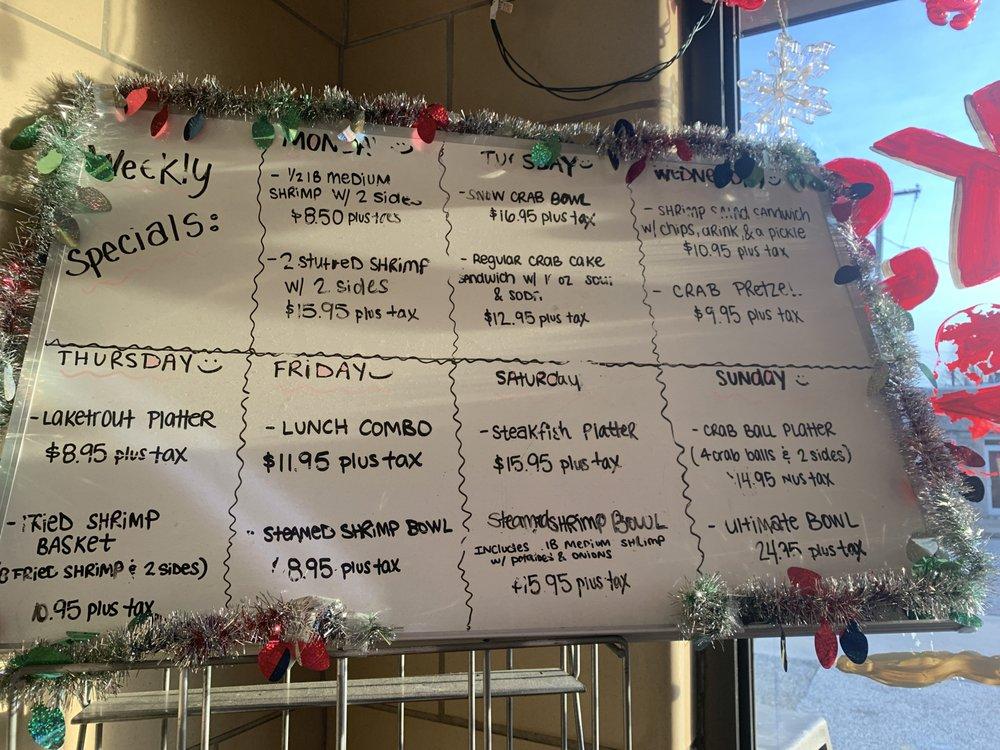 Weekly
Specials:
MONDAY
- 1/2 lB MEDIUM
SHRIMP W/ 2 sides
$8.50 plus taxes
- 2 STUFFED SHRIMP
W/ 2 sides
$15.95 plus tax
TUESDAY
- SNOW CRAB BOWL
$16.95 plus tax
- REGULAR CRAB CAKE
Sandwich W/ oz soup
& SODA
$12.95 plus tax
WEDNESDAY
- SHRIMP salad sandwich
w/ chips, drink, & a pickle
$10.95 plus tax
- CRAB PRETZEL
$9.95 plus tax
THURSDAY
- LAKETROUT PLATTER
$8.95 plus tax
- FRIED SHRIMP
BASKET
FRIED SHRIMP & 2 SIDES)
10.95 plus tax
FRIDAY
- LUNCH COMBO
$11.95 plus tax
- STEAMED SHRIMP BOWL
8.95 plus tax
SATURDAY
- Steakfish Platter
$15.95 plus tax
Steamed SHRIMP BOWL
INCLUDES lB MEDIUM SHRIMP
w/ potatoes & ONIONS
$15.95 plus tax
SUNDAY
- CRAB BALL PLATTER
(4 crab balls & 2 sides)
14.95 plus tax
- ULTIMATE BOWL
24.95 plus tax